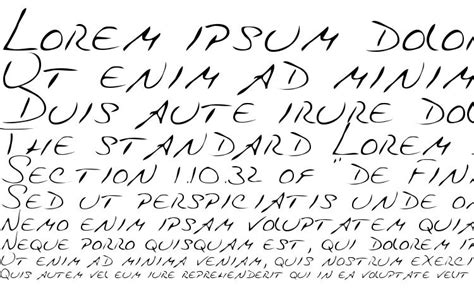 LOREM IPSUM DOLOR
UT ENIM AD MINIM
DUIS AUTE IRURE DO
THE STANDARD LOREM
SECTION 1.10.32 OF "DE FIN
SED UT PERSPICIATIS UNDE O
NEMO ENIM IPSAM VOLUPTATEM QUIA
NEQUE PORRO QUISQUAM EST, QUI DOLOREM I
UT ENIM AD MINIMA VENIAM, QUIS NOSTRUM EXERCI
QUIS AUTEM VEL EUM IURE REPREHENDERIT QUI IN EA VOLUPTATE VELIT